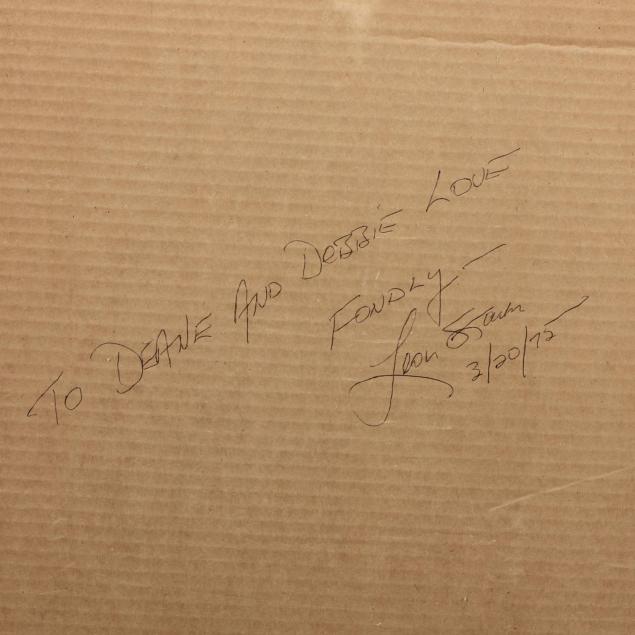 To DEANE AND DEBBIE LOVE
FONDLY —
Leon
3/20/72